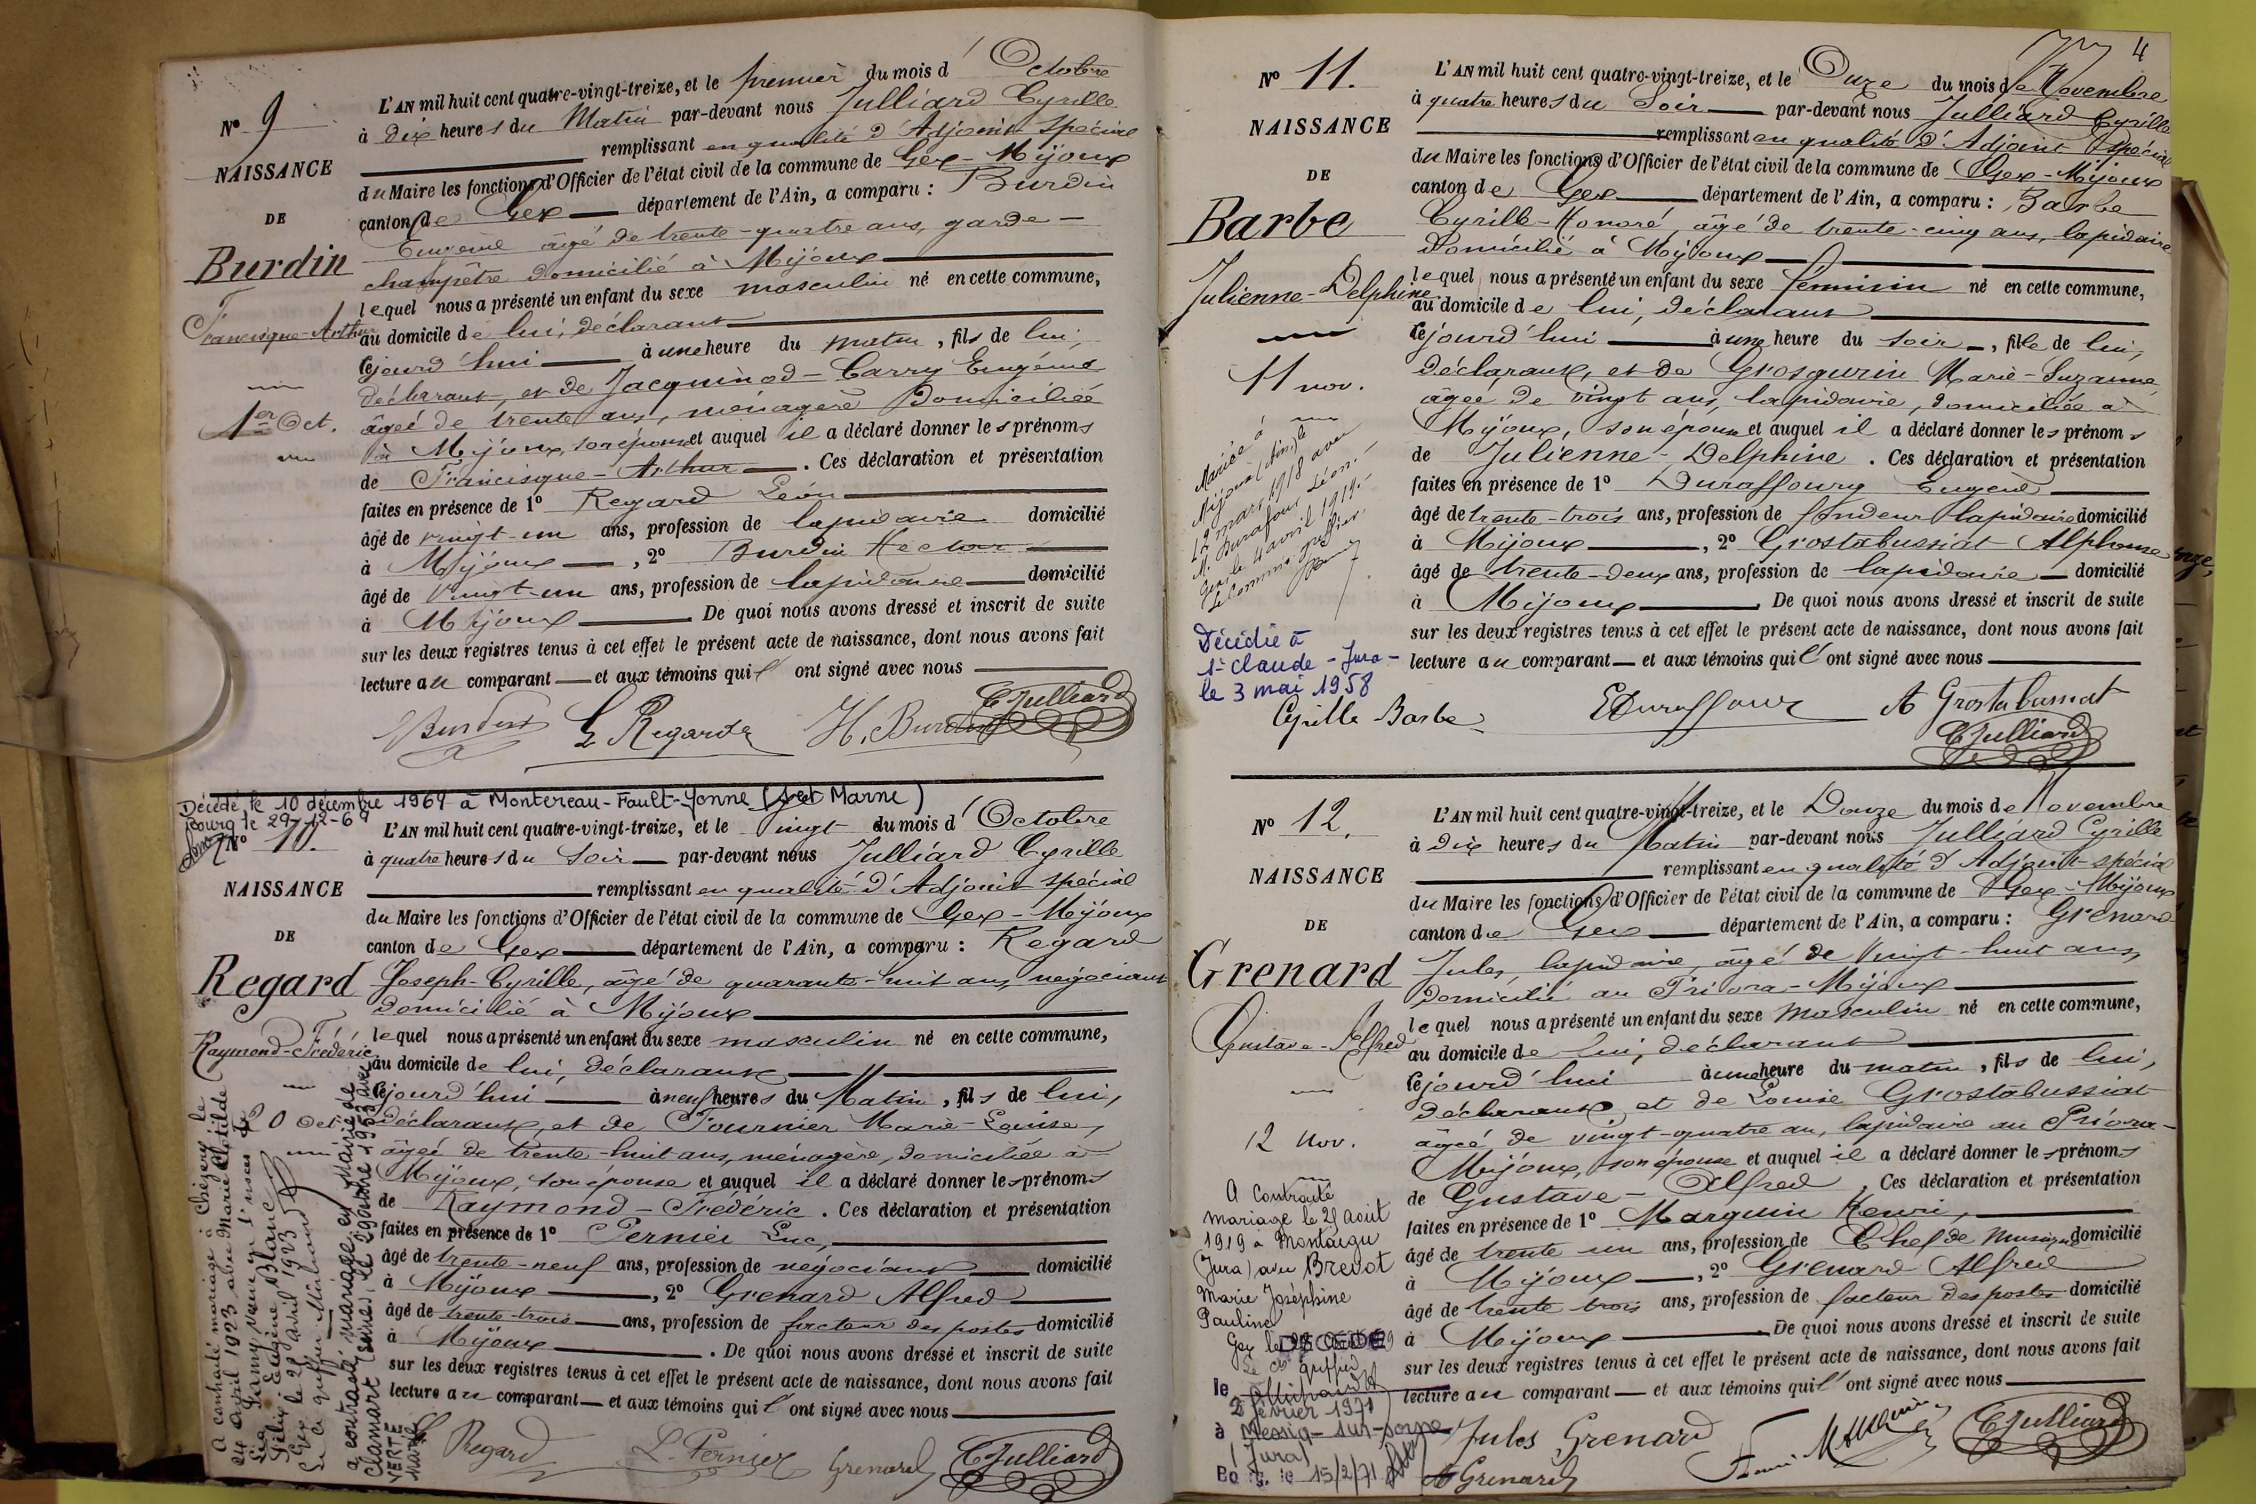 Nº 9
NAISSANCE
DE
Burdin
Francisque-Arthur
1er Oct.
L'AN mil huit cent quatre-vingt-treize, et le premier du mois d'Octobre
à dix heures du Matin par-devant nous Julliard Cyrille
remplissant en qualité d'Adjoint spécial
du Maire les fonctions d'Officier de l'état civil de la commune de Gex-Mijoux
canton de Gex département de l'Ain, a comparu : Burdin
Eugène âgé de trente-quatre ans, garde-
champêtre domicilié à Mijoux
lequel nous a présenté un enfant du sexe masculin né en cette commune,
au domicile de lui, déclarant
cejourd'hui à une heure du matin, fils de lui,
déclarant, et de Jacquinod-Carry Eugénie
âgée de trente ans, ménagère domiciliée
à Mijoux, son épouse et auquel il a déclaré donner les prénoms
de Francisque-Arthur. Ces déclaration et présentation
faites en présence de 1º Regard Léon
âgé de vingt-un ans, profession de lapidaire domicilié
à Mijoux, 2º Burdin Hector
âgé de vingt-un ans, profession de lapidaire domicilié
à Mijoux. De quoi nous avons dressé et inscrit de suite
sur les deux registres tenus à cet effet le présent acte de naissance, dont nous avons fait
lecture au comparant et aux témoins qui l' ont signé avec nous
Burdin L Regard H. Burdin CJulliard
Décédé le 10 décembre 1969 à Montereau-Fault-Yonne (Set Marne)
Bourg le 29-12-69
Nº 10.
NAISSANCE
DE
Regard
Raymond-Frédéric
20 Oct.
A contracté mariage à Chézery le
24 avril 1923 avec Marie Clotilde
Léa Famy, veuve en 1res noces de
Félix Eugène Blanc
Gex le 28 avril 1923
Le greffier
a contracté mariage en Mairie de
Clamart (Seine), le 2 octobre 1953 avec
VERTE
Marie
L'AN mil huit cent quatre-vingt-treize, et le vingt du mois d'Octobre
à quatre heures du Soir par-devant nous Julliard Cyrille
remplissant en qualité d'Adjoint spécial
du Maire les fonctions d'Officier de l'état civil de la commune de Gex-Mijoux
canton de Gex département de l'Ain, a comparu : Regard
Joseph-Cyrille, âgé de quarante-huit ans, négociant
domicilié à Mijoux
lequel nous a présenté un enfant du sexe masculin né en cette commune,
au domicile de lui, déclarant
cejourd'hui à neuf heures du Matin, fils de lui,
déclarant, et de Fournier Marie-Louise,
âgée de trente-huit ans, ménagère, domiciliée à
Mijoux, son épouse et auquel il a déclaré donner les prénoms
de Raymond-Frédéric. Ces déclaration et présentation
faites en présence de 1º Pernier Luc,
âgé de trente-neuf ans, profession de négociant domicilié
à Mijoux, 2º Grenard Alfred
âgé de trente-trois ans, profession de facteur des postes domicilié
à Mijoux. De quoi nous avons dressé et inscrit de suite
sur les deux registres tenus à cet effet le présent acte de naissance, dont nous avons fait
lecture au comparant et aux témoins qui l' ont signé avec nous
Regard L. Pernier Grenard CJulliard
4
Nº 11.
NAISSANCE
DE
Barbe
Julienne-Delphine
11 nov.
Mariée à
Mijoux (Ain) le
19 mars 1918 avec
M. Durafour Léon.
Gex le 4 avril 1919.
Le Commis greffier
Décédée à
St-Claude-Jura-
le 3 mai 1958
L'AN mil huit cent quatre-vingt-treize, et le Onze du mois de Novembre
à quatre heures du Soir par-devant nous Julliard Cyrille
remplissant en qualité d'Adjoint spécial
du Maire les fonctions d'Officier de l'état civil de la commune de Gex-Mijoux
canton de Gex département de l'Ain, a comparu : Barbe
Cyrille-Honoré, âgé de trente-cinq ans, lapidaire
domicilié à Mijoux
lequel nous a présenté un enfant du sexe féminin né en cette commune,
au domicile de lui, déclarant
cejourd'hui à une heure du soir, fille de lui,
déclarant, et de Grosgurin Marie-Suzanne
âgée de vingt ans, lapidaire, domiciliée à
Mijoux, son épouse et auquel il a déclaré donner les prénoms
de Julienne-Delphine. Ces déclaration et présentation
faites en présence de 1º Duraffourg Eugène
âgé de trente-trois ans, profession de fondeur lapidaire domicilié
à Mijoux, 2º Grostabussiat Alphonse
âgé de trente-deux ans, profession de lapidaire domicilié
à Mijoux. De quoi nous avons dressé et inscrit de suite
sur les deux registres tenus à cet effet le présent acte de naissance, dont nous avons fait
lecture au comparant et aux témoins qui l' ont signé avec nous
Cyrille Barbe EDuraffour A Grostabussiat
CJulliard
Nº 12.
NAISSANCE
DE
Grenard
Gustave-Alfred
12 nov.
A contracté
mariage le 25 août
1919 à Montaigu
(Jura) avec Brevot
Marie Joséphine
Pauline
Gex le
greffier
DÉCÉDÉ
le 2 février 1971
à Messia-sur-Sorne
(Jura)
Bourg, le 15/2/71
L'AN mil huit cent quatre-vingt-treize, et le Douze du mois de Novembre
à dix heures du Matin par-devant nous Julliard Cyrille
remplissant en qualité d'Adjoint spécial
du Maire les fonctions d'Officier de l'état civil de la commune de Gex-Mijoux
canton de Gex département de l'Ain, a comparu : Grenard
Jules, lapidaire, âgé de vingt-huit ans,
domicilié au Priora-Mijoux
lequel nous a présenté un enfant du sexe masculin né en cette commune,
au domicile de lui, déclarant
cejourd'hui à une heure du matin, fils de lui,
déclarant, et de Louise Grostabussiat
âgée de vingt-quatre an, lapidaire au Priora-
Mijoux, son épouse et auquel il a déclaré donner les prénoms
de Gustave-Alfred. Ces déclaration et présentation
faites en présence de 1º Marquin Henri,
âgé de trente un ans, profession de Chef de musique domicilié
à Mijoux, 2º Grenard Alfred
âgé de trente trois ans, profession de facteur des postes domicilié
à Mijoux. De quoi nous avons dressé et inscrit de suite
sur les deux registres tenus à cet effet le présent acte de naissance, dont nous avons fait
lecture au comparant et aux témoins qui l' ont signé avec nous
Jules Grenard CJulliard
A Grenard